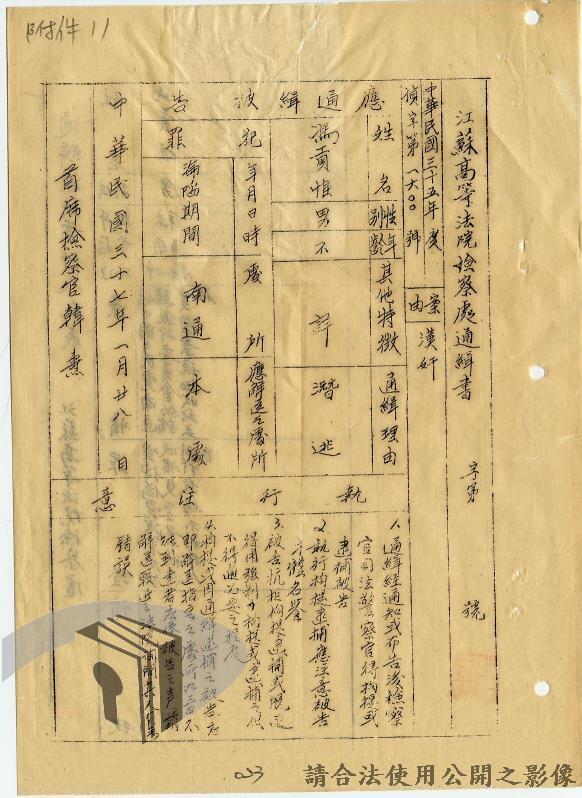 附件11
江蘇高等法院檢察處通緝書 字第 號
中華民國三十五年度
偵字第一六〇〇號
案由 漢奸
應通緝被告
姓名 性別 年齡 其他特徵 通緝理由
馮貢惟 男 不詳 潛逃
犯罪
年月日時 處所 應解送之處所
淪陷期間 南通 本處
中華民國三十七年一月廿八日
首席檢察官韓燾
執行注意
1、通緝經通知或布告後檢察
官司法警察官得拘提或
逮捕被告
2、執行拘提逮捕應注意被告
身體名譽
3、被告抗拒拘提逮捕或脫逃
得用強制力拘提或逮捕之但
不得逾必要之程度
4、拘提或因通緝逮捕之被告應
即解送指定之處所如三日不
能到達者應依被告之聲請
解送較近之法院訊問其人有無
錯誤
23
請合法使用公開之影像